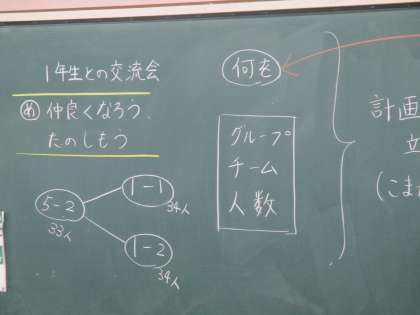 1年生との交流会
め 仲良くなろう、
たのしもう
5-2
33人
1-1
34人
1-2
34人
何を
グループ
チーム
人数
計画
立
(こま